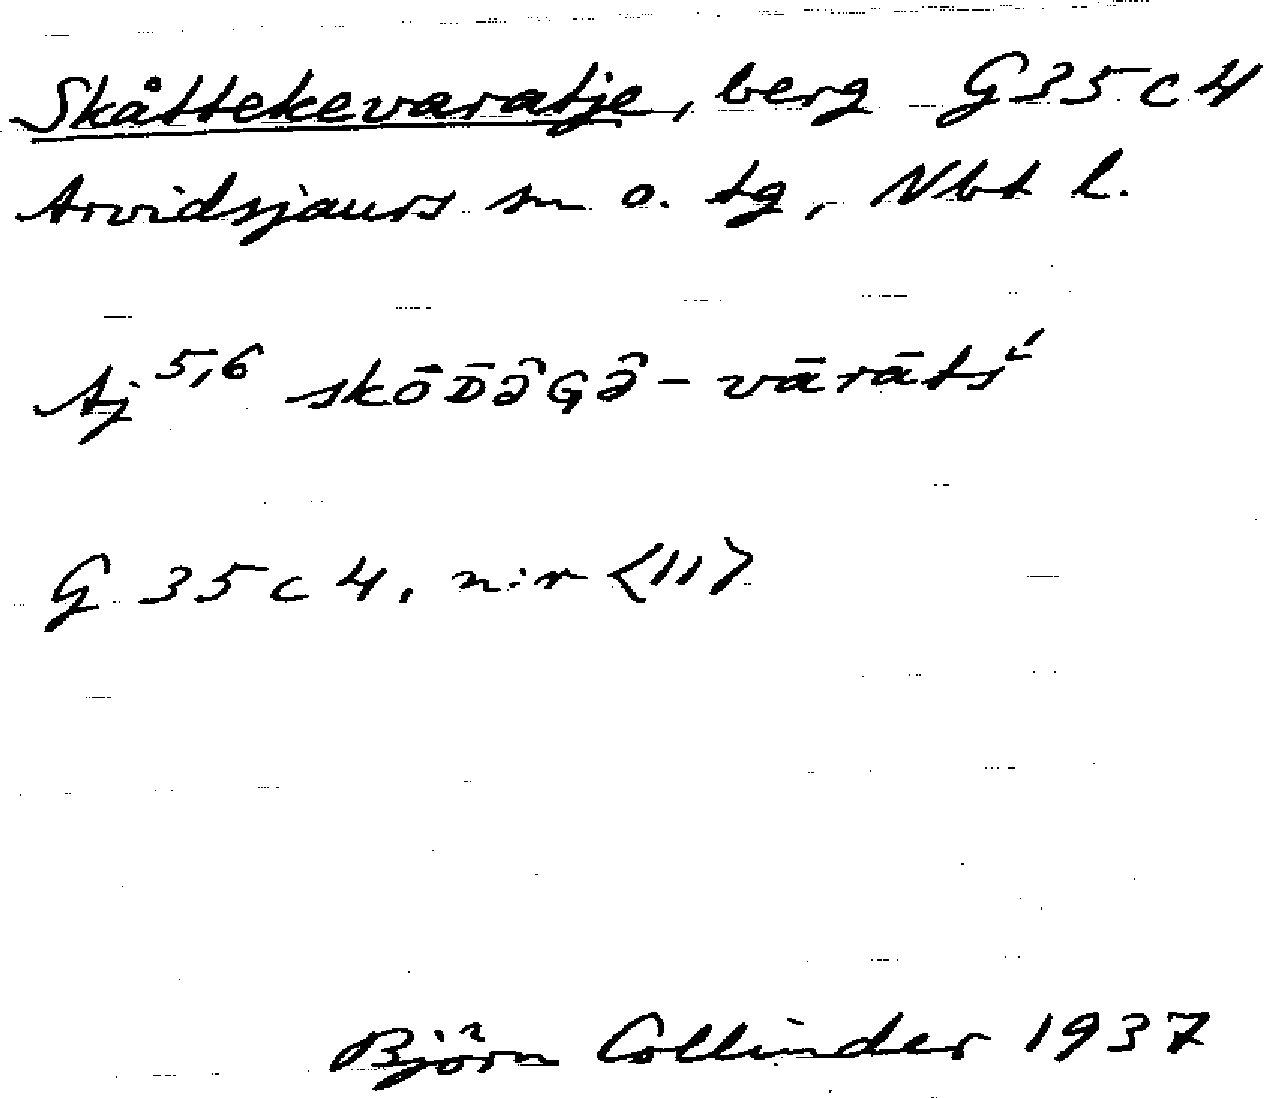 Skåttekevaratje, berg G35c4
Arvidsjaurs sn o. tg, Nbt l.
Aj 5,6 skōᴅ̄ə̑ɢə̑-vārāts'
G 35 c 4, n:r <11>
Björn Collinder 1937